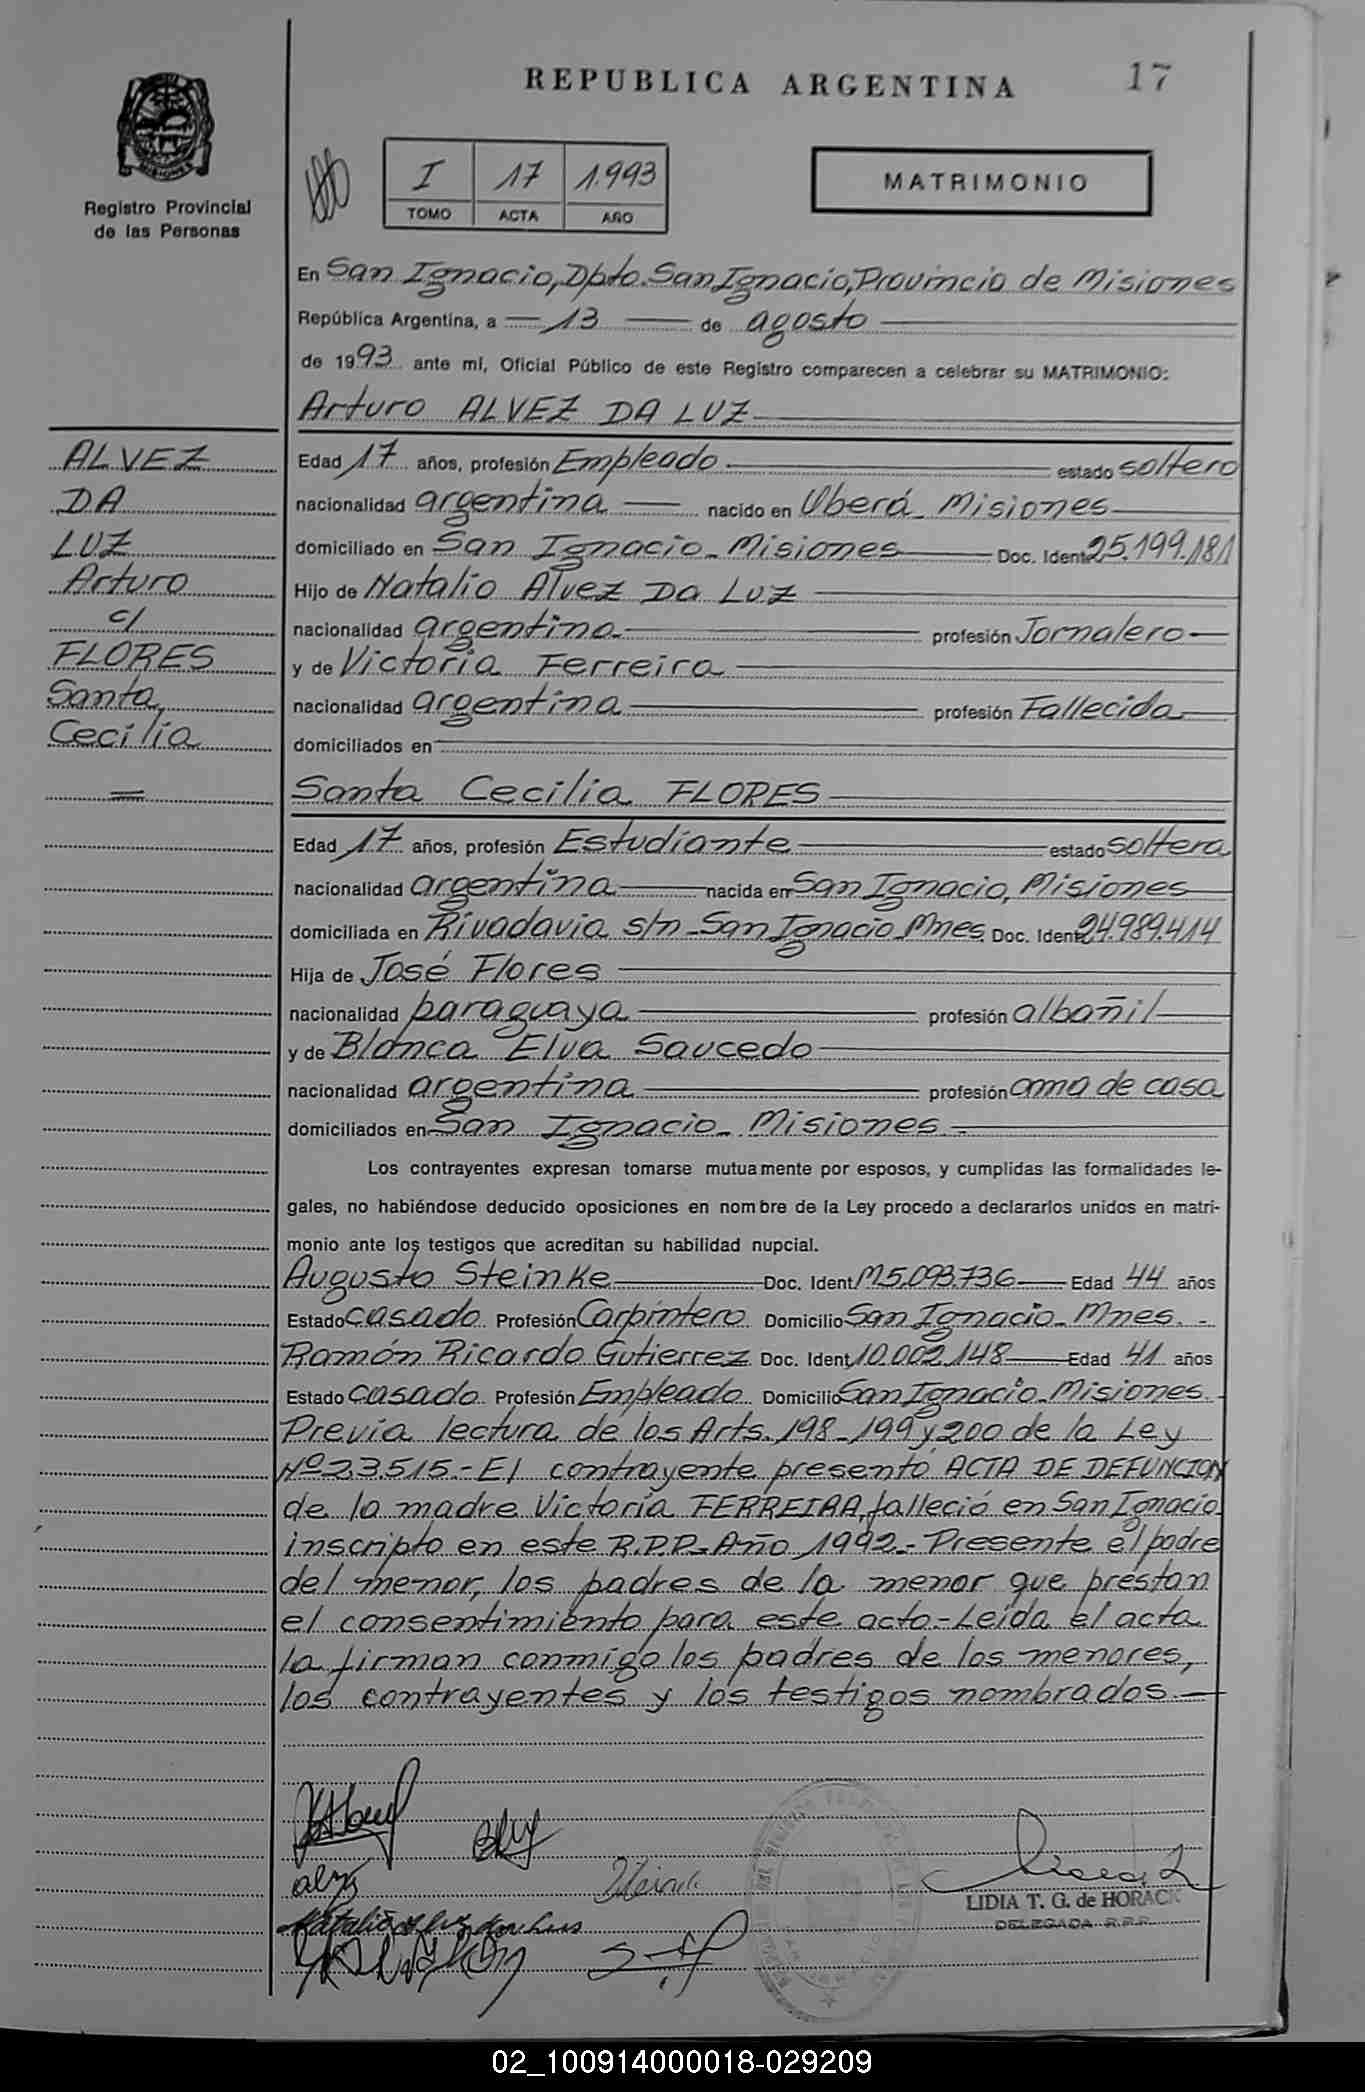 REPUBLICA ARGENTINA 17
MISIONES
Registro Provincial
de las Personas
I 17 1.993
TOMO ACTA AÑO
MATRIMONIO
En San Ignacio, Dpto. San Ignacio, Provincia de Misiones
República Argentina, a 13 de agosto
de 1993 ante mi, Oficial Público de este Registro comparecen a celebrar su MATRIMONIO:
Arturo ALVEZ DA LUZ
ALVEZ
DA
LUZ
Arturo
c/
FLORES
Santa
Cecilia
Edad 17 años, profesión Empleado estado soltero
nacionalidad argentina nacido en Oberá - Misiones
domiciliado en San Ignacio - Misiones Doc. Ident 25.199.181
Hijo de Natalio Alvez Da Luz
nacionalidad argentina profesión Jornalero
y de Victoria Ferreira
nacionalidad argentina profesión Fallecida
domiciliados en
Santa Cecilia FLORES
Edad 17 años, profesión Estudiante estado soltera
nacionalidad argentina nacida en San Ignacio, Misiones
domiciliada en Rivadavia s/n - San Ignacio Mnes. Doc. Ident 24.989.414
Hija de José Flores
nacionalidad paraguaya profesión albañil
y de Blanca Elva Saucedo
nacionalidad argentina profesión ama de casa
domiciliados en San Ignacio - Misiones -
Los contrayentes expresan tomarse mutuamente por esposos, y cumplidas las formalidades le-
gales, no habiéndose deducido oposiciones en nombre de la Ley procedo a declararlos unidos en matri-
monio ante los testigos que acreditan su habilidad nupcial.
Augusto Steinke Doc. Ident M5.093.736 Edad 44 años
Estado casado Profesión Carpintero Domicilio San Ignacio - Mnes. -
Ramón Ricardo Gutierrez Doc. Ident 10.002.148 Edad 41 años
Estado casado Profesión Empleado Domicilio San Ignacio - Misiones.
Previa lectura de los Arts. 198 - 199 y 200 de la Ley
Nº 23.515.- El contrayente presentó ACTA DE DEFUNCION
de la madre Victoria FERREIRA, falleció en San Ignacio
inscripto en este R.P.P. Año 1992.- Presente el padre
del menor, los padres de la menor que prestan
el consentimiento para este acto.- Leída el acta
la firman conmigo los padres de los menores,
los contrayentes y los testigos nombrados.-
LIDIA T. G. de HORACK
DELEGADA R.P.P.
02_100914000018-029209